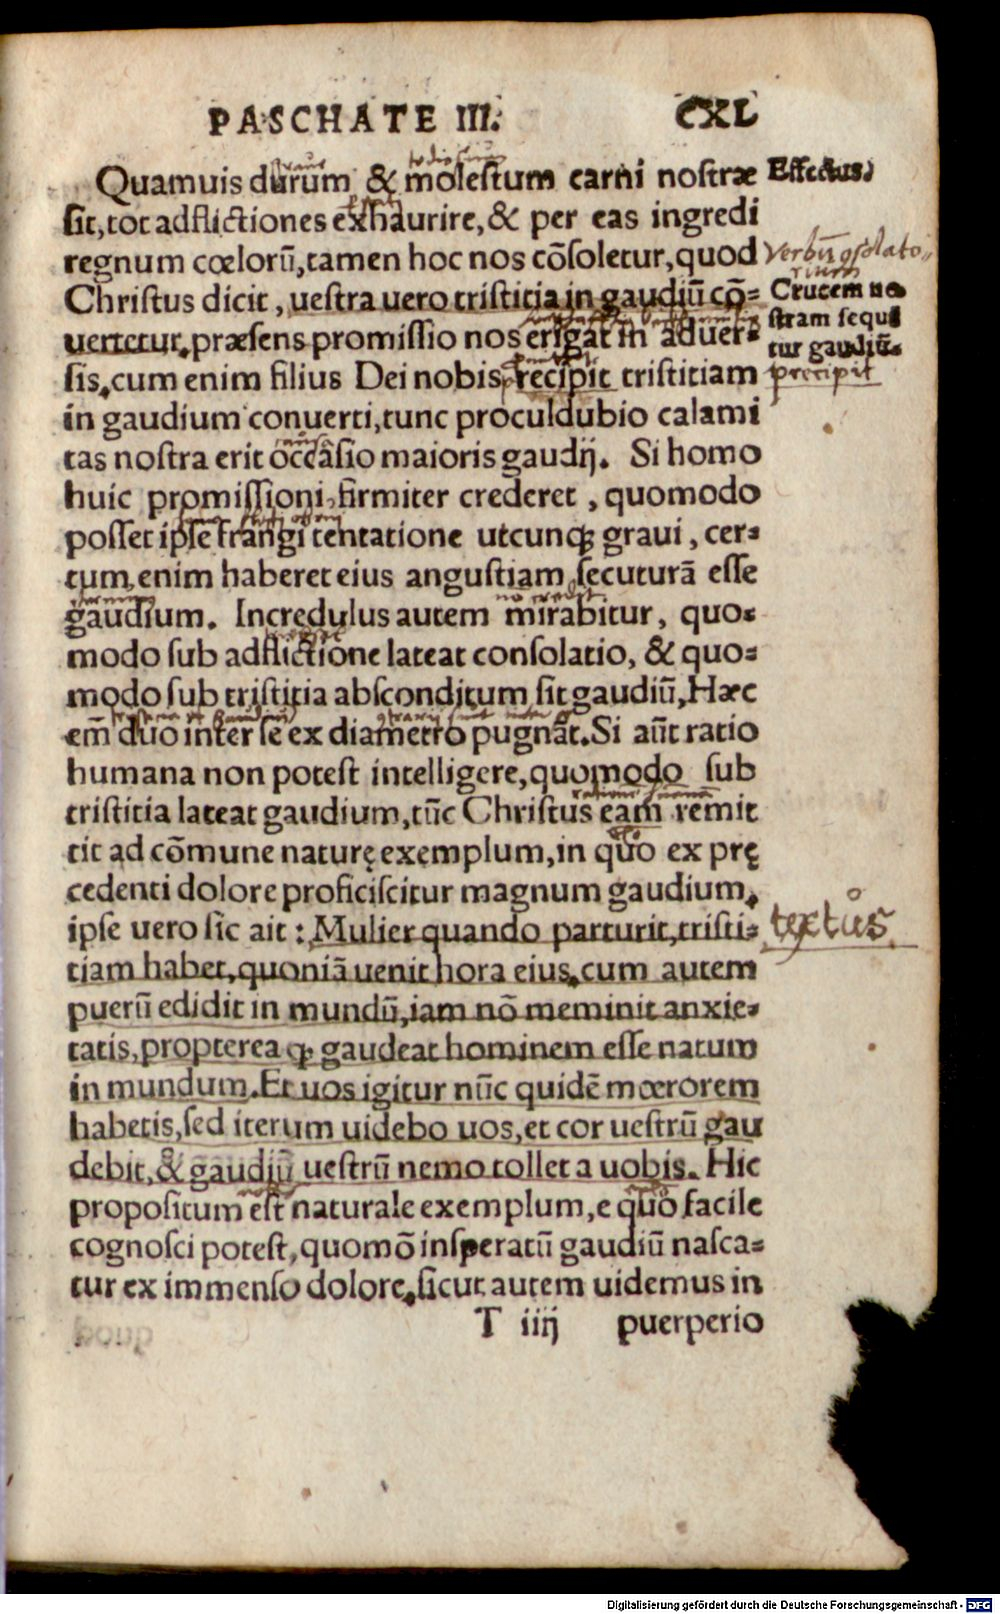 PASCHATE III. CXL
Quamuis durum & molestum carni nostræ
sit, tot adflictiones exhaurire, & per eas ingredi
regnum cœlorũ, tamen hoc nos cõsoletur, quod
Christus dicit, uestra uero tristitia in gaudiũ cõ-
uertetur. præsens promissio nos erigat in aduer-
sis. cum enim filius Dei nobis recipit tristitiam
in gaudium conuerti, tunc proculdubio calami
tas nostra erit occasio maioris gaudij. Si homo
huic promissioni firmiter crederet, quomodo
posset ipse frangi tentatione utcunq; graui, cer-
tum enim haberet eius angustiam secuturã esse
gaudium. Incredulus autem mirabitur, quo-
modo sub adflictione lateat consolatio, & quo-
modo sub tristitia absconditum sit gaudiũ, Hæc
em̃ duo inter se ex diametro pugnãt. Si aũt ratio
humana non potest intelligere, quomodo sub
tristitia lateat gaudium, tũc Christus eam remit
tit ad cõmune naturę exemplum, in quo ex prę
cedenti dolore proficiscitur magnum gaudium.
ipse uero sic ait: Mulier quando parturit, tristi-
tiam habet, quoniã uenit hora eius. cum autem
puerũ edidit in mundũ, iam nõ meminit anxie-
tatis, propterea ꝙ gaudeat hominem esse natum
in mundum. Et uos igitur nũc quidẽ mœrorem
habetis, sed iterum uidebo uos, et cor uestrũ gau
debit, & gaudiũ uestrũ nemo tollet a uobis. Hic
propositum est naturale exemplum, e quo facile
cognosci potest, quomõ insperatũ gaudiũ nasca-
tur ex immenso dolore. sicut autem uidemus in
T iiij puerperio
Effectus.
Crucem no
stram sequi
tur gaudiũ.
precipit
textus
Digitalisierung gefördert durch die Deutsche Forschungsgemeinschaft - DFG